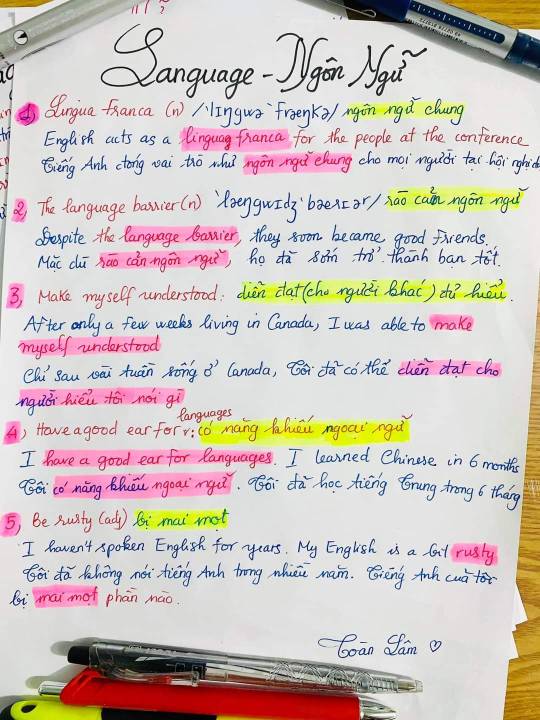 Language - Ngôn Ngữ
1, Lingua franca (n) /'lɪŋgwə 'fræŋkə/ ngôn ngữ chung
English acts as a linguag franca for the people at the conference
Tiếng Anh đóng vai trò như ngôn ngữ chung cho mọi người tại hội nghị
2, The language barrier (n) 'læŋgwɪdʒ 'bæeɪər/ rào cản ngôn ngữ
Despite the language barrier, they soon became good friends.
Mặc dù rào cản ngôn ngữ, họ đã sớm trở thành bạn tốt.
3, Make myself understood: diễn đạt (cho người khác) dễ hiểu.
After only a few weeks living in Canada, I was able to make
myself understood
Chỉ sau vài tuần sống ở Canada, Tôi đã có thể diễn đạt cho
người hiểu tôi nói gì
4, Have a good ear for languages v: có năng khiếu ngoại ngữ
I have a good ear for languages. I learned Chinese in 6 months
Tôi có năng khiếu ngoại ngữ. Tôi đã học tiếng Trung trong 6 tháng
5, Be rusty (adj) bị mai một
I haven't spoken English for years. My English is a bit rusty
Tôi đã không nói tiếng Anh trong nhiều năm. Tiếng Anh của tôi
bị mai một phần nào.
Toàn Lâm ♡